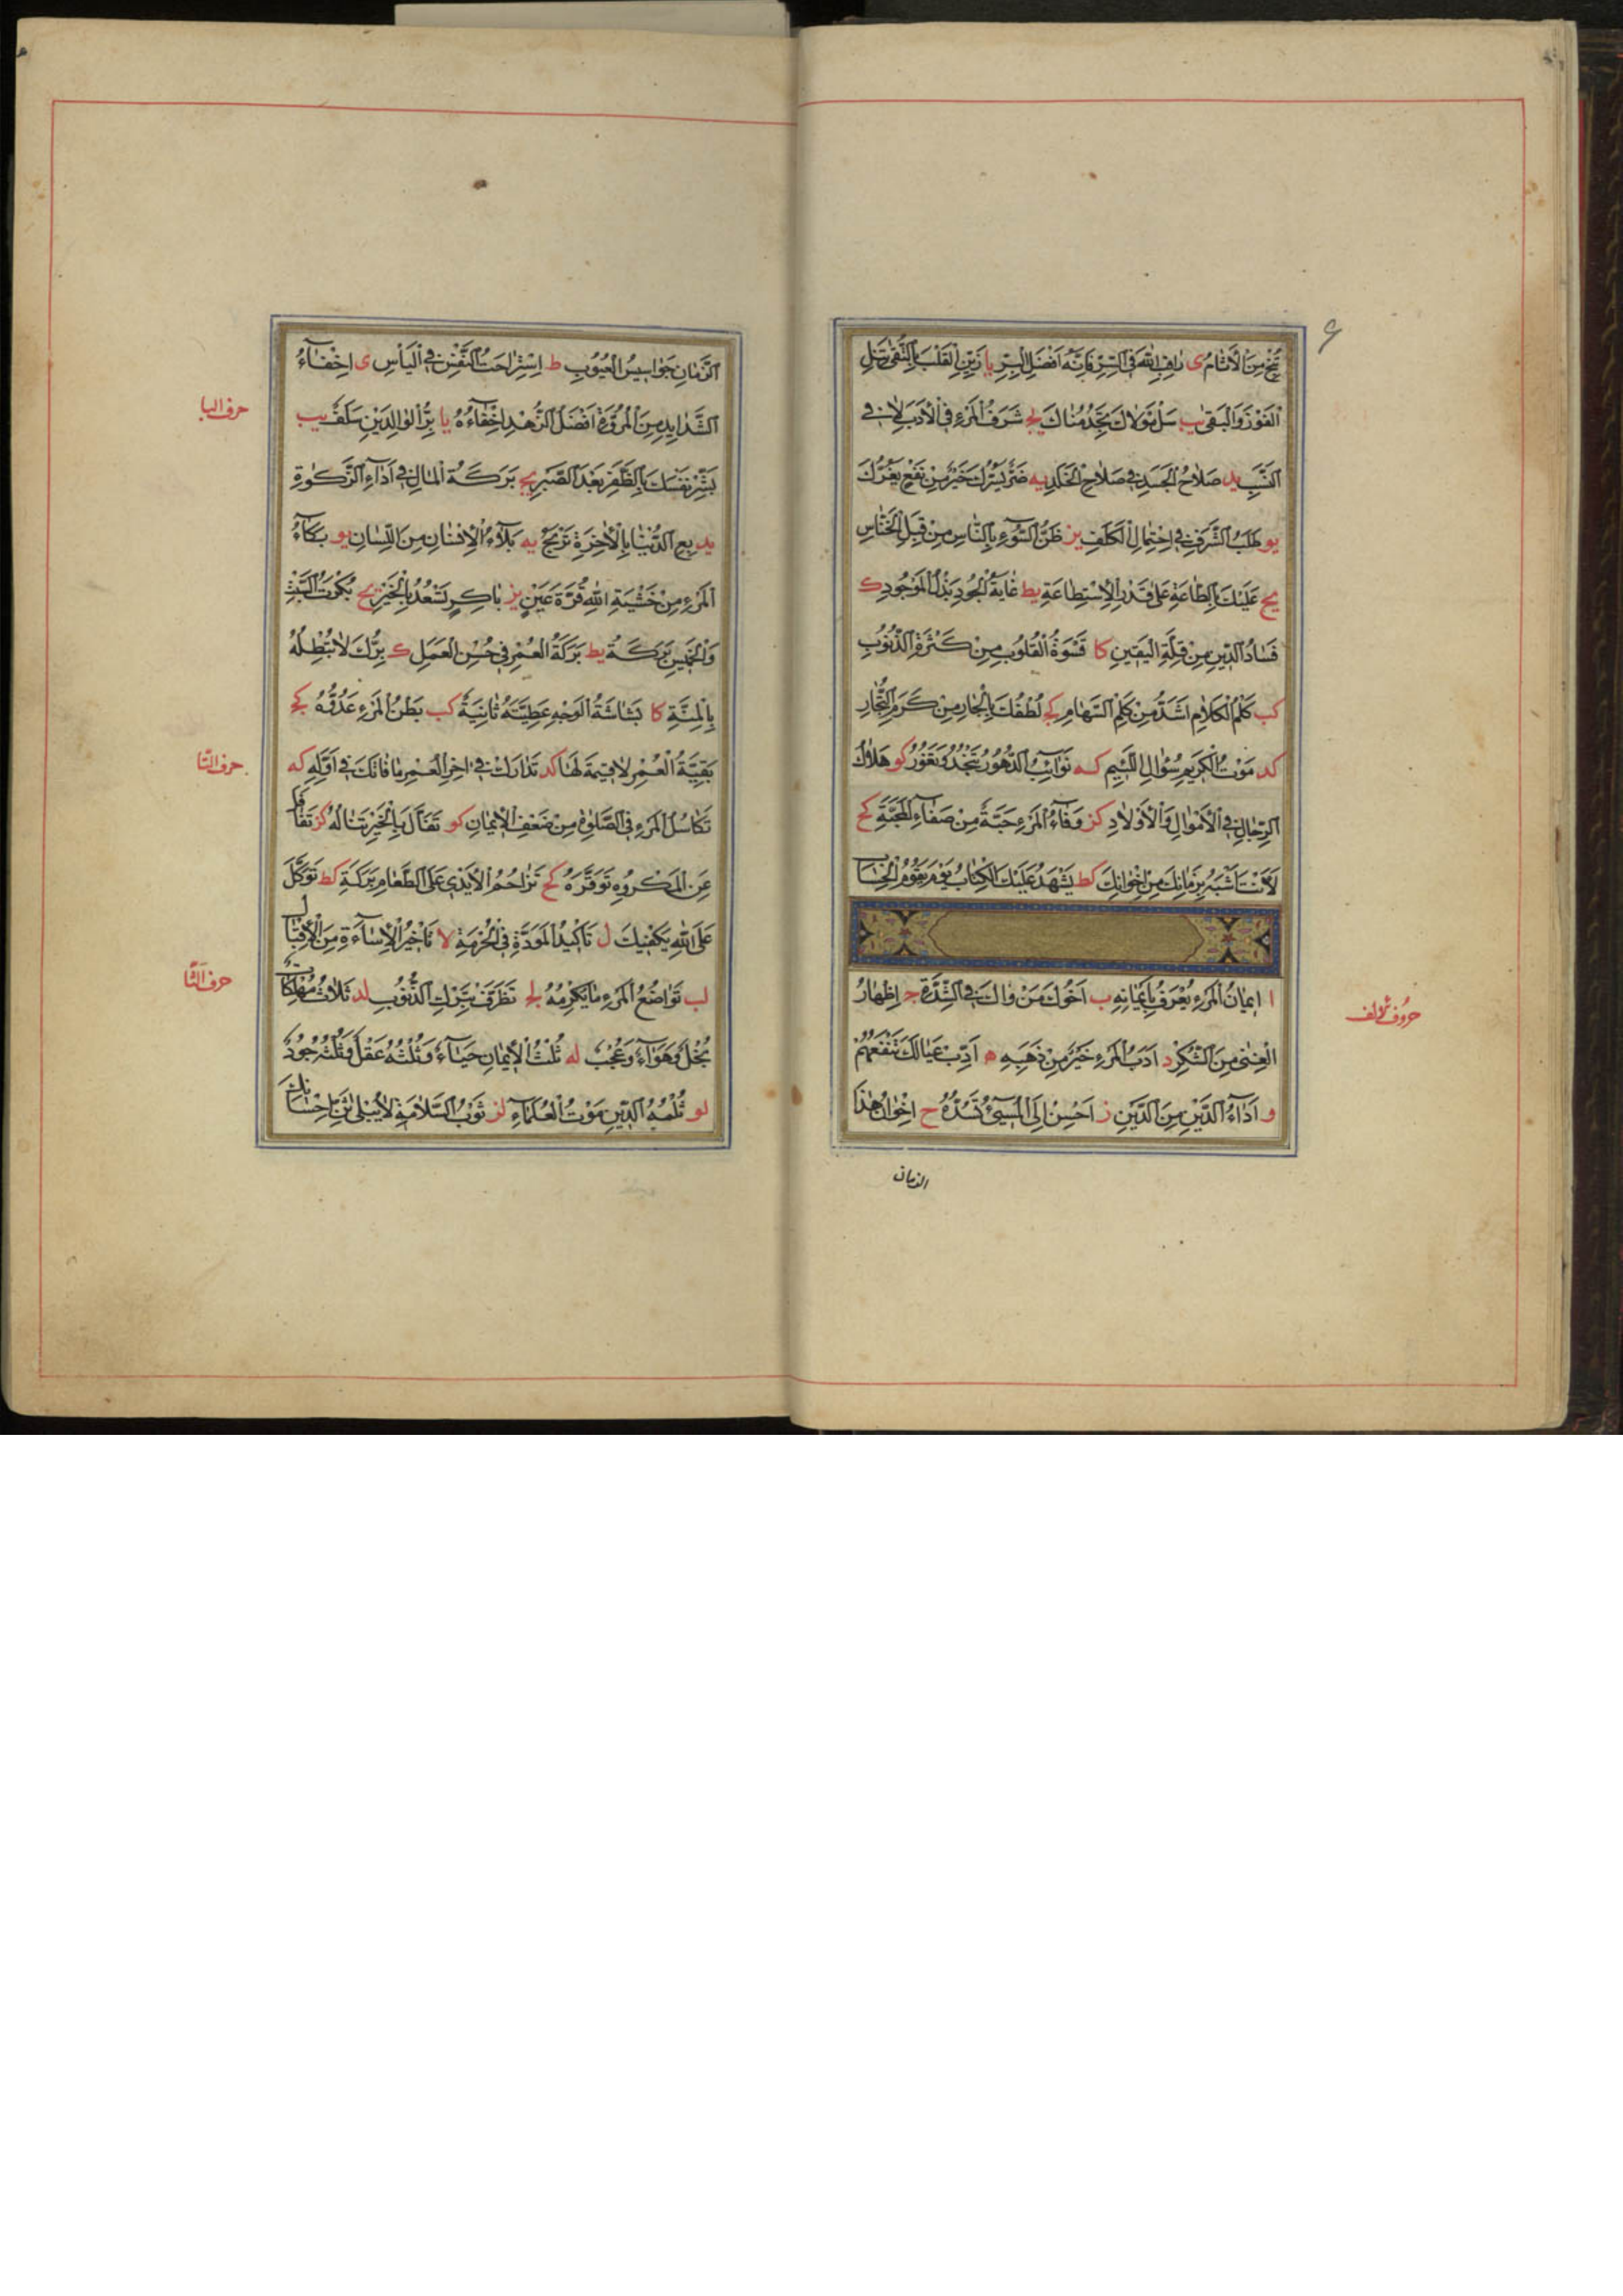 تَنْجُ مِنَ الْاٰثَامِ ى رَاقِبِ اللّٰهَ فِي السِّرِّ فَاِنَّهُ اَفْضَلُ الْبِرِّ يا زَيِّنِ الْقَلْبَ بِالتُّقٰى تَنَلِ
الْفَوْزَ وَالْبَقٰى يب سَلْ مَوْلَاكَ تَجِدْ مُنَاكَ يج شَرَفُ الْمَرْءِ فِي الْاَدَبِ لَا فِي
النَّسَبِ يد صَلَاحُ الْجَسَدِ فِي صَلَاحِ الْخَلَدِ يه ضَرٌّ يَسُرُّكَ خَيْرٌ مِنْ نَفْعٍ يَغُرُّكَ
يو طَلَبُ الشَّرَفِ فِي احْتِمَالِ الْكَلَفِ يز ظَنُّ السُّوءِ بِالنَّاسِ مِنْ قِبَلِ الْخَنَّاسِ
يح عَلَيْكَ بِالطَّاعَةِ عَلٰى قَدْرِ الْاِسْتِطَاعَةِ يط غَايَةُ الْجُودِ بَذْلُ الْمَوْجُودِ ك
فَسَادُ الدِّينِ مِنْ قِلَّةِ الْيَقِينِ كا قَسْوَةُ الْقُلُوبِ مِنْ كَثْرَةِ الذُّنُوبِ
كب كَلْمُ الْكَلَامِ اَشَدُّ مِنْ كَلْمِ السِّهَامِ كج لُطْفُكَ بِالْجَارِ مِنْ كَرَمِ النِّجَارِ
كد مَوْتُ الْكَرِيمِ سُؤَالُ اللَّئِيمِ كه نَوَائِبُ الدُّهُورِ تَنْجُدُ وَتَغُورُ كو هَلَاكُ
الرِّجَالِ فِي الْاَمْوَالِ وَالْاَوْلَادِ كز وَفَاءُ الْمَرْءِ حَبَّةً مِنْ صَفَاءِ الْمَحَبَّةِ كح
لَاَنْتَ اَشْبَهُ بِزَمَانِكَ مِنْ اِخْوَانِكَ كط يَشْهَدُ عَلَيْكَ الْكِتَابُ يَوْمَ يَقُومُ الْحِسَابُ
حروف الالف
ا اِيمَانُ الْمَرْءِ يُعْرَفُ بِاَيْمَانِهِ ب اَخُوكَ مَنْ وَاسَاكَ فِي الشِّدَّةِ ج اِظْهَارُ
الْغِنٰى مِنَ الشُّكْرِ د اَدَبُ الْمَرْءِ خَيْرٌ مِنْ ذَهَبِهِ ه اَدِّبْ عِيَالَكَ تَنْفَعْهُمْ
و اَدَاءُ الدَّيْنِ مِنَ الدِّينِ ز اَحْسِنْ اِلَى الْمُسِيءِ تَسُدْهُ ح اِخْوَانُ هٰذَا
الزمان
الزَّمَانِ جَوَاسِيسُ الْعُيُوبِ ط اِسْتِرَاحَتُ النَّفْسِ فِي الْيَأْسِ ى اِخْفَاءُ
حرف البا
الشَّدَايِدِ مِنَ الْمُرُوَّةِ اَفْضَلُ الزُّهْدِ اِخْفَاءُهُ يا بِرُّ الْوَالِدَيْنِ سَلَفٌ يب
بَشِّرْ نَفْسَكَ بِالظَّفَرِ بَعْدَ الصَّبْرِ يج بَرَكَةُ الْمَالِ فِي اَدَاءِ الزَّكٰوةِ
يد بِعِ الدُّنْيَا بِالْاٰخِرَةِ تَرْبَحْ يه بَلَاءُ الْاِنْسَانِ مِنَ اللِّسَانِ يو بُكَاءُ
الْمَرْءِ مِنْ خَشْيَةِ اللّٰهِ قُرَّةُ عَيْنٍ يز بَاكِرْ تَسْعُدْ بِالْخَيْرِ يح بُكْرَتُ السَّبْتِ
وَالْخَمِيسِ بَرَكَةٌ يط بَرَكَةُ الْعُمْرِ فِي حُسْنِ الْعَمَلِ ك بِرُّكَ لَا تُبْطِلْهُ
بِالْمِنَّةِ كا بَشَاشَةُ الْوَجْهِ عَطِيَّةٌ ثَانِيَةٌ كب بَطْنُ الْمَرْءِ عَدُوُّهُ كج
حرف التا
بَقِيَّةُ الْعُمْرِ لَا قِيمَةَ لَهَا كد تَدَارَكْ فِي اٰخِرِ الْعُمْرِ مَا فَاتَكَ فِي اَوَّلِهِ كه
تَكَاسُلُ الْمَرْءِ فِي الصَّلٰوةِ مِنْ ضَعْفِ الْاِيمَانِ كو تَفَأَّلْ بِالْخَيْرِ تَنَالُهُ كز تَغَافَلْ
عَنِ الْمَكْرُوهِ تَوَقَّرْهُ كح تَزَاحُمُ الْاَيْدِي عَلَى الطَّعَامِ بَرَكَةٌ كط تَوَكَّلْ
عَلَى اللّٰهِ يَكْفِيكَ ل تَأْكِيدُ الْمَوَدَّةِ فِي الْحُرْمَةِ لا تَأْخِيرُ الْاِسَاءَةِ مِنَ الْاِقْبَالِ
حرف الثا
لب تَوَاضُعُ الْمَرْءِ مَا يُكْرِمُهُ لج تَظَرَّفْ بِتَرْكِ الذُّنُوبِ لد ثَلَاثٌ مُهْلِكَاتٌ
بُخْلٌ وَهَوَاءٌ وَعُجْبٌ له ثُلْثُ الْاِيمَانِ حَيَاءٌ وَثُلْثُهُ عَقْلٌ وَثُلْثُهُ جُودٌ
لو ثُلْمَةُ الدِّينِ مَوْتُ الْعُلَمَاءِ لز ثَوْبُ السَّلَامَةِ لَا يَبْلٰى ثَنِّ اِحْسَانَكَ